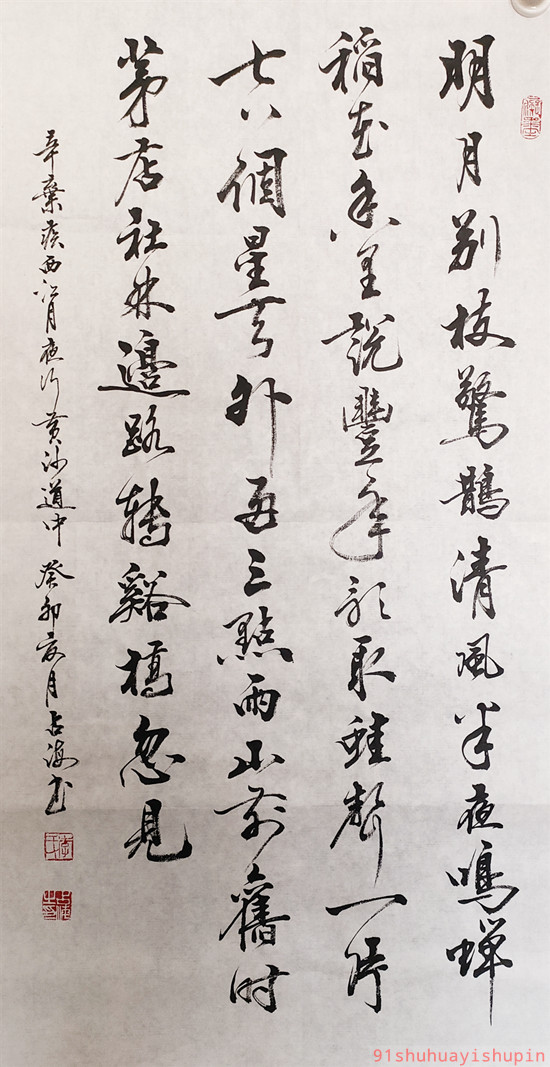 明月别枝驚鵲清風半夜鳴蟬
稻花香里説豐年聽取蛙聲一片
七八個星天外兩三點雨山前舊时
茅店社林邊路轉谿橋忽見
辛棄疾西江月夜行黄沙道中 癸卯夏月占海书
占海之印
91shuhuayishupin